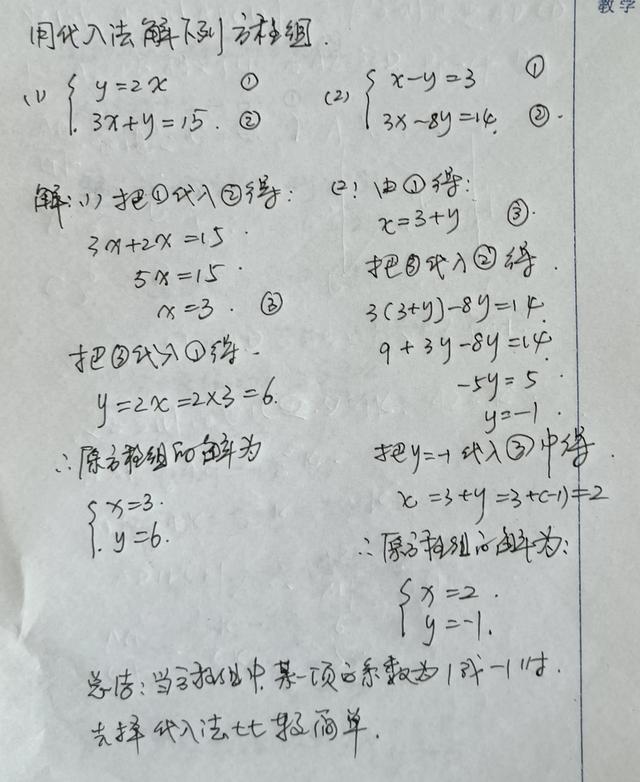 教学
用代入法解下列方程组.
(1) { y=2x ①
3x+y=15. ②
(2) { x-y=3 ①
3x-8y=14. ②.
解:(1) 把①代入②得:
3x+2x=15.
5x=15.
x=3. ③
把③代入①得.
y=2x=2×3=6.
∴原方程组的解为
{ x=3.
y=6.
(2): 由①得:
x=3+y ③.
把③代入②得.
3(3+y)-8y=14.
9+3y-8y=14.
-5y=5.
y=-1.
把y=-1代入③中得.
x=3+y=3+(-1)=2
∴原方程组的解为:
{ x=2.
y=-1.
总结:当方程组中某一项的系数为1或-1时.
选择代入法比较简单.